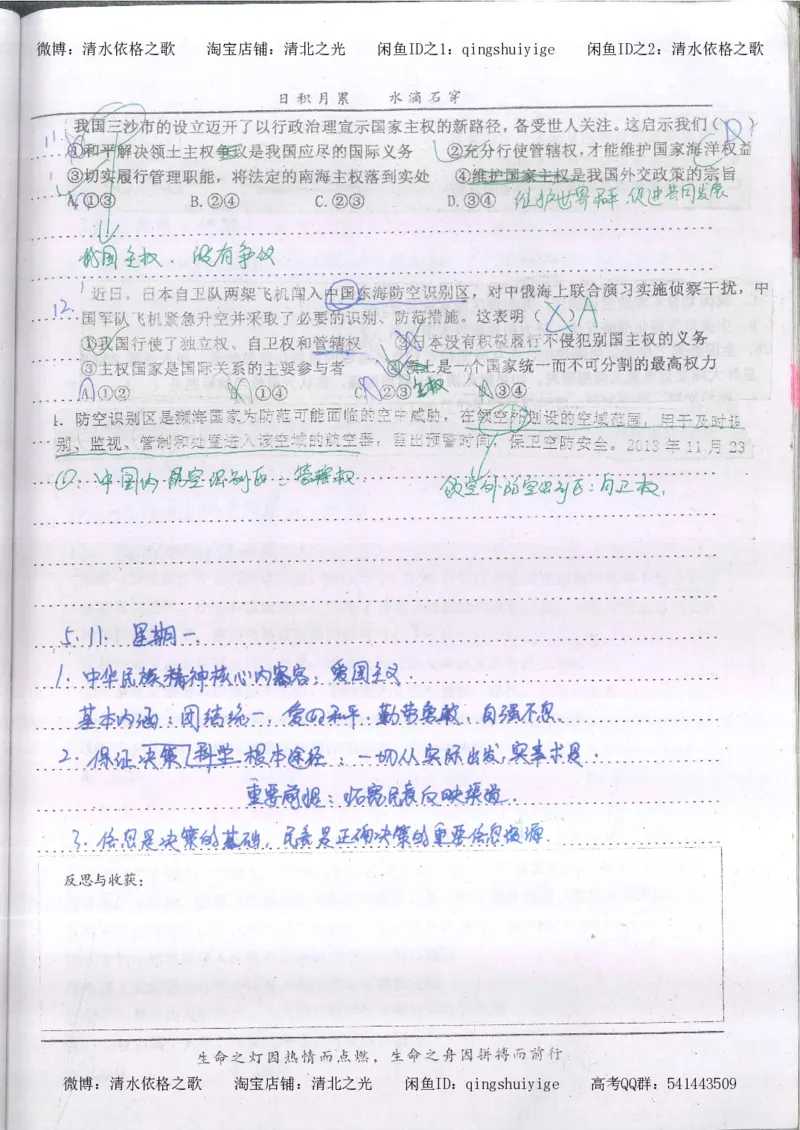 微博：清水依格之歌　淘宝店铺：清北之光　闲鱼ID之1：qingshuiyige　闲鱼ID之2：清水依格之歌
日积月累　水滴石穿
11. 我国三沙市的设立迈开了以行政治理宣示国家主权的新路径，各受世人关注。这启示我们（ D ）
①和平解决领土主权争议是我国应尽的国际义务　②充分行使管辖权，才能维护国家海洋权益 C
③切实履行管理职能，将法定的南海主权落到实处　④维护国家主权是我国外交政策的宗旨
A.①③　B.②④　C.②③　D.③④　维护世界和平 促进共同发展
我国主权．没有争议
12. 近日，日本自卫队两架飞机闯入中国东海防空识别区，对中俄海上联合演习实施侦察干扰，中
国军队飞机紧急升空并采取了必要的识别、防范措施。这表明（ ）A
①我国行使了独立权、自卫权和管辖权　②日本没有积极履行不侵犯别国主权的义务
③主权国家是国际关系的主要参与者　④领土是一个国家统一而不可分割的最高权力
A.①②　B.①④　C.②③　主权　D.③④
1. 防空识别区是濒海国家为防范可能面临的空中威胁，在领空外划设的空域范围，用于及时识
别、监视、管制和处置进入该空域的航空器，留出预警时间，保卫空防安全。2013年11月23
①：中国内防空识别区：管辖权　领空外防空识别区：自卫权．
5.11. 星期一．
1. 中华民族精神核心内容：爱国主义．
基本内涵：团结统一．爱好和平．勤劳勇敢．自强不息．
2. 保证决策科学根本途径：一切从实际出发，实事求是．
重要前提：拓宽民意反映渠道．
3. 信息是决策的基础，民意是正确决策的重要信息资源
反思与收获：
生命之灯因热情而点燃，生命之舟因拼搏而前行
微博：清水依格之歌　淘宝店铺：清北之光　闲鱼ID：qingshuiyige　高考QQ群：541443509